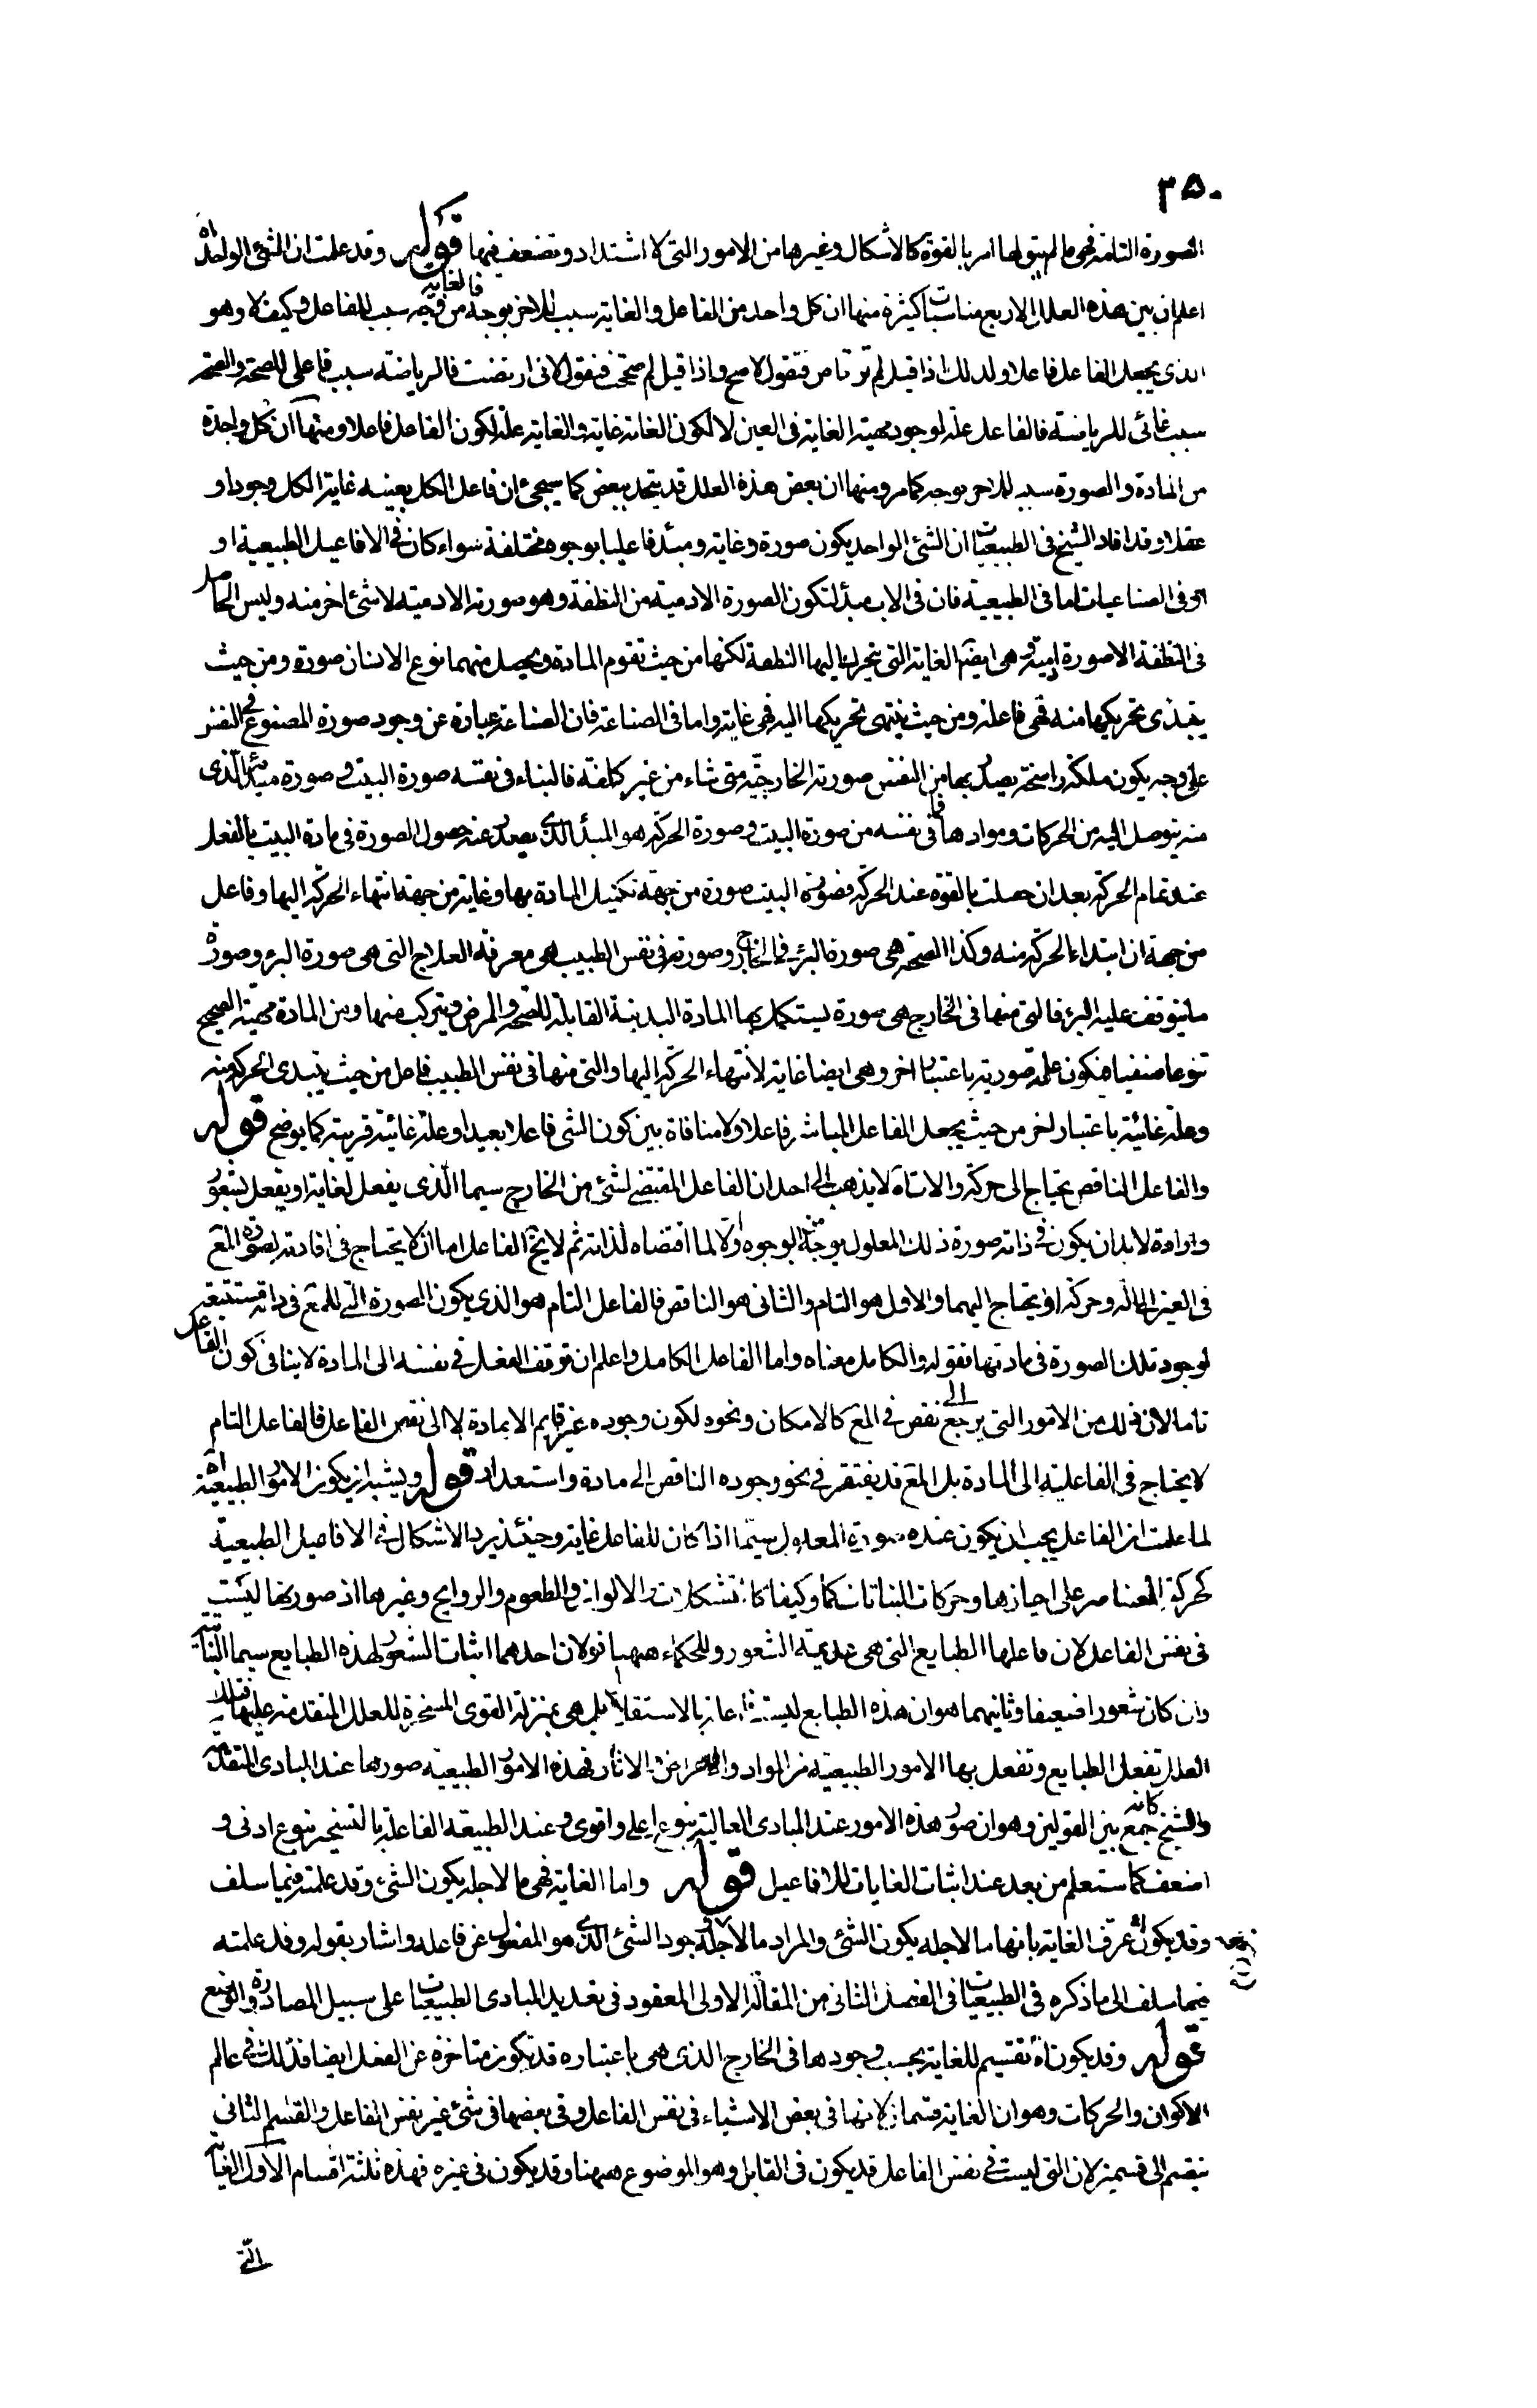 ٣٥٠
الصورة التامة فهى ما لم يبق لها امر بالقوة كالاشكال وغيرها من الامور التى لا اشتداد وتضعف فيها قوله وقد علمت ان الشئ الواحد اه
اعلم ان بين هذه العلل الاربع مناسبات كثيرة منها ان كل واحد من الفاعل والغاية سبب للاخر بوجه فالغاية من وجه سبب للفاعل وكيف لا وهو
الذى يجعل الفاعل فاعلا ولذلك اذا قيل لم ترتاض فتقول لاصح واذا قيل لم صححت فنقول لانى ارتضت فالرياضة سبب فاعلى للصحة والصحة
سبب غائى للرياضة فالفاعل علة لوجود مهية الغاية فى العين لا لكون الغاية غاية والغاية علة لكون الفاعل فاعلا ومنها ان كل واحدة
من المادة والصورة سبب للاخر بوجه كما مر ومنها ان بعض هذه العلل قد يتحد ببعض كما سيجئ ان فاعل الكل بعينه غاية الكل وجودا و
عقلا وقد افاد الشيخ فى الطبيعيات ان الشئ الواحد يكون صورة وغاية ومبدأ فاعليا بوجوه مختلفة سواء كان فى الافاعيل الطبيعية او
فى الصناعيات اما فى الطبيعية فان فى الاب مبدأ لتكون الصورة الادمية من النطفة وهو صورته الادمية لا شئ اخر منه وليس الحاصل
فى النطفة الا صورة ادمية وهى ايضا الغاية التى يتحرك اليها النطفة لكنها من حيث تقوم المادة ويحصل منهما نوع الانسان صورة ومن حيث
يبتدى تحريكها منه فهى فاعلة ومن حيث ينتهى تحريكها اليه فهى غاية واما فى الصناعة فان الصناعة عبارة عن وجود صورة المصنوع فى النفس
على وجه يكون ملكة راسخة يصدر بها من النفس صورته الخارجية متى شاء من غير كلفة فالبناء فى نفسه صورة البيت وصورة مبدئها الذى
منه يتوصل اليه من الحركات وموادها فما فى نفسه من صورة البيت وصورة الحركة هو المبدأ الذى يصدر عنه حصول الصورة فى مادة البيت بالفعل
عند تمام الحركة بعد ان حصلت بالقوة عند الحركة فصورة البيت صورة من جهة تكميل المادة بها وغاية من جهة انتهاء الحركة اليها وفاعل
من جهة ان ابتداء الحركة منه وكذا الصحة هى صورة البرء فى الخارج وصورته فى نفس الطبيب هى معرفة العلاج التى هى صورة البرء وصورة
ما يتوقف عليه البرء فالتى منها فى الخارج هى صورة يستكمل بها المادة البدنية القابلة للصحة والمرض ويتركب منها ومن المادة مهية الصحيح
تنوعا صنفيا فتكون علة صورية باعتبار اخر وهى ايضا غاية لانتهاء الحركة اليها والتى منها فى نفس الطبيب فاعل من حيث يبتدى الحركة منه
وعلة غائية باعتبار اخر من حيث يجعل الفاعل المباشر فاعلا ولا منافاة بين كون الشى فاعلا بعيدا وعلة غائية قريبة كما يوضح قوله
والفاعل الناقص يحتاج الى حركة والات اه لا يذهب الى احد ان الفاعل المقتضى لشئ من الخارج سيما الذى يفعل لغاية او يفعل بشعور
وارادة لا بد ان يكون فى ذاته صورة ذلك المعلول بوجه من الوجوه اولا لما اقتضاه لذاته ثم لا يخ الفاعل اما ان لا يحتاج فى افادته لصورة المع
فى العين الى الة وحركة او يحتاج اليهما والاول هو التام والثانى هو الناقص فالفاعل التام هو الذى يكون الصورة التى للمع فى ذاته مستتبعة
لوجود تلك الصورة فى مادتها فقوله والكامل معناه واما الفاعل الكامل واعلم ان توقف الفعل فى نفسه الى المادة لا ينافى كون الفاعل
تاما لان ذلك من الامور التى يرجع الى نقص فى المع كالامكان ونحوه لكون وجوده غير قايم الا بمادة لا الى نقص الفاعل فالفاعل التام
لا يحتاج فى الفاعلية الى المادة بل المع قد يفتقر فى نحو وجوده الناقص الى مادة واستعداد قوله ويشبه ان يكون الامور الطبيعية اه
لما علمت ان الفاعل يجب ان يكون عنده صورة المعلول سيما اذا كان للفاعل غاية وحينئذ يرد الاشكال فى الافاعيل الطبيعية
كحركة العناصر على احيازها وحركات النباتات كما وكيفا كالتشكلات والالوان والطعوم والروايح وغيرها اذ صورتها ليست
فى نفس الفاعل لان فاعلها الطبايع التى هى عديمة الشعور وللحكماء ههنا قولان احدهما اثبات الشعور لهذه الطبايع سيما النباتية
وان كان شعورا ضعيفا وثانيهما هو ان هذه الطبايع ليست فاعلة بالاستقلال بل هى بمنزلة القوى المسخرة للعلل المتقدمة عليها فتلك
العلل تفعل الطبايع وتفعل بها الامور الطبيعية من المواد والاعراض والاثار فهذه الامور الطبيعية صورها عند المبادى المتقدمة
والشيخ كانه جمع بين القولين وهو ان صور هذه الامور عند المبادى العالية بنوع اعلى واقوى وعند الطبيعة الفاعلة بالتسخير بنوع ادنى و
اضعف كما ستعلم من بعد عند اثبات الغايات للافاعيل قوله واما الغاية فهى ما لاجله يكون الشئ وقد علمته فيما سلف
وقد يكون اه عرف الغاية بانها ما لاجله يكون الشئ والمراد ما لاجله وجود الشئ الذى هو المفعول عن فاعله واشار بقوله وقد علمته
فيما سلف الى ما ذكره فى الطبيعيات فى الفصل الثانى من المقالة الاولى المعقود فى تعديد المبادى الطبيعيات على سبيل المصادرة والوضع
قوله وقد يكون اه تقسيم للغاية بحسب وجودها فى الخارج الذى هى باعتباره قد تكون متاخرة عن الفعل ايضا فذلك فى عالم
الاكوان والحركات وهو ان الغاية قسمان لانها فى بعض الاشياء فى نفس الفاعل وفى بعضها فى شئ غير نفس الفاعل والقسم الثانى
ينقسم الى قسمين لان التى ليست فى نفس الفاعل قد يكون فى القابل وهو الموضوع ههنا وقد يكون فى غيره فهذه ثلثة اقسام الاول الغاية
التى